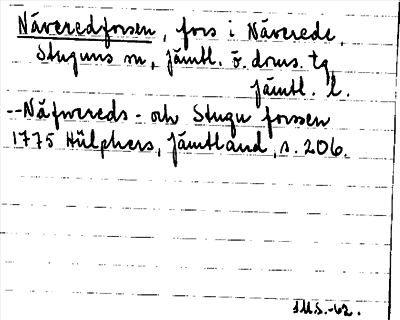 Näveredforsen, fors i Näverede,
Stuguns sn, Jämtl. ö. doms. tg
Jämtl. l.
--Näfwereds- och Stugu forssen
1775 Hülphers, Jämtland, s. 206.
IMS.-62.